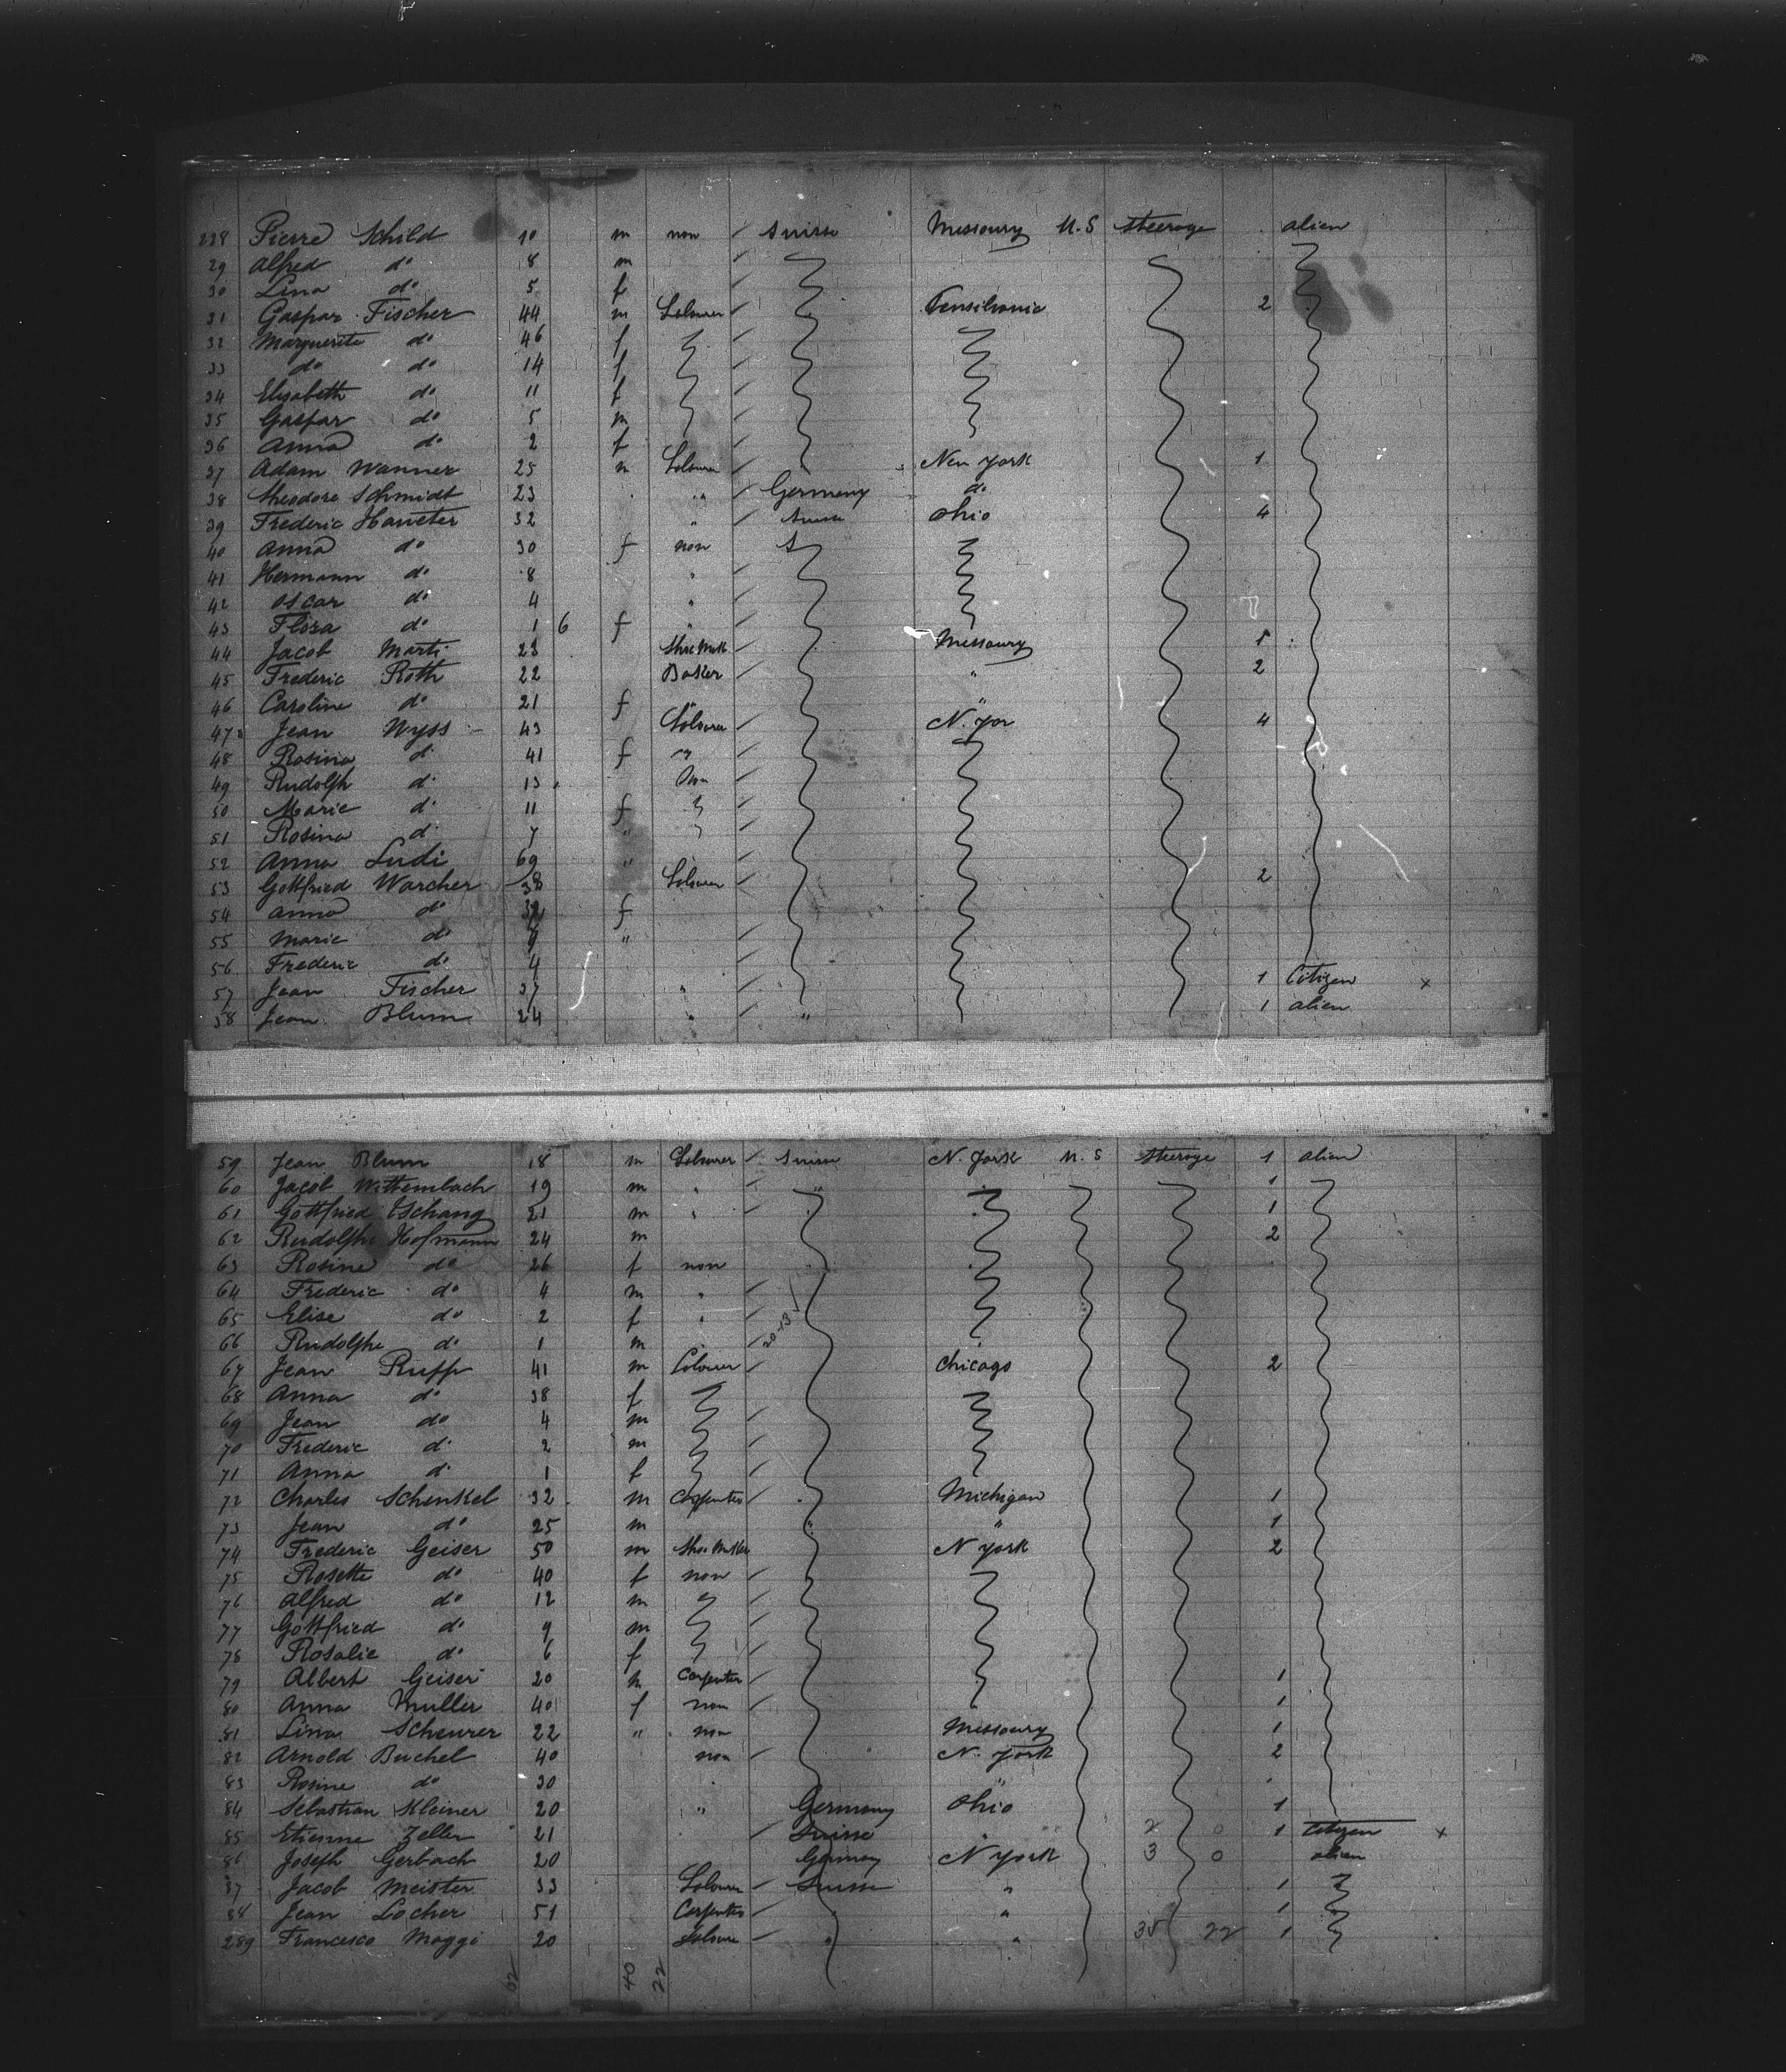 228 Pierre Schild 10 m non Suisse Missoury U.S steerage alien
29 Alfred do 8 m
30 Lina do 5 f
31 Gaspar Fischer 44 m Labourer Pensilvania 2
32 Marguerite do 46 f
33 do do 14 f
34 Elisabeth do 11 f
35 Gaspar do 5 m
36 Anna do 2 f
37 Adam Wanner 25 m Labourer New York 1
38 Theodore Schmidt 23 " Germany do
39 Frederic Haueter 32 " Suisse Ohio 4
40 Anna do 30 f non S
41 Hermann do 8 "
42 Oscar do 4 "
43 Flora do 1 6 f "
44 Jacob Marti 23 Shoe Mak Missoury 1
45 Frederic Roth 22 Baker " 2
46 Caroline do 21 f " "
47 Jean Wyss 43 Labourer N. Yor 4
48 Rosina d 41 f "
49 Rudolph d 13 non
50 Marie d 11 f
51 Rosina d 7 "
52 Anna Ludi 69 "
53 Gottfried Warcher 38 Labourer 2
54 Anna do f
55 Marie do 9 "
56 Frederic do 4
57 Jean Fischer 37 " 1 Citizen x
58 Jean Blum 24 " " 1 alien
59 Jean Blum 18 m Labourer Suisse N. York U. S steerage 1 alien
60 Jacob Wittembach 19 m " " 1
61 Gottfried Tschang 21 m " 1
62 Rudolphe Hofmann 24 m 2
63 Rosine do 26 f non
64 Frederic do 4 m "
65 Elise do 2 f "
66 Rudolphe do 1 m " 20-13
67 Jean Rupp 41 m Labourer Chicago 2
68 Anna do 38 f
69 Jean do 4 m
70 Frederic d 2 m
71 Anna d 1 f
72 Charles Schenkel 32 m Carpenter Michigan 1
73 Jean do 25 m " " 1
74 Frederic Geiser 50 m Shoe Maker N York 2
75 Rosette do 40 f non
76 Alfred do 12 m
77 Gottfried do 9 m
78 Rosalie do 6 f
79 Albert Geiser 20 m Carpenter 1
80 Anna Muller 40 f non 1
81 Lina Scheurer 22 " non Missoury 1
82 Arnold Buchel 40 non N. York 2
83 Rosine do 30 "
84 Sebastian Kleiner 20 " Germany Ohio 1
85 Etienne Zeller 21 Suisse " 2 0 1 Citizen x
86 Joseph Gerbach 20 Germany N York 3 0 alien
87 Jacob Meister 33 Labourer Suisse " 1
88 Jean Locher 51 Carpenter " 1
289 Francesco Maggi 20 Labourer " " 35 22 1
62 40 22